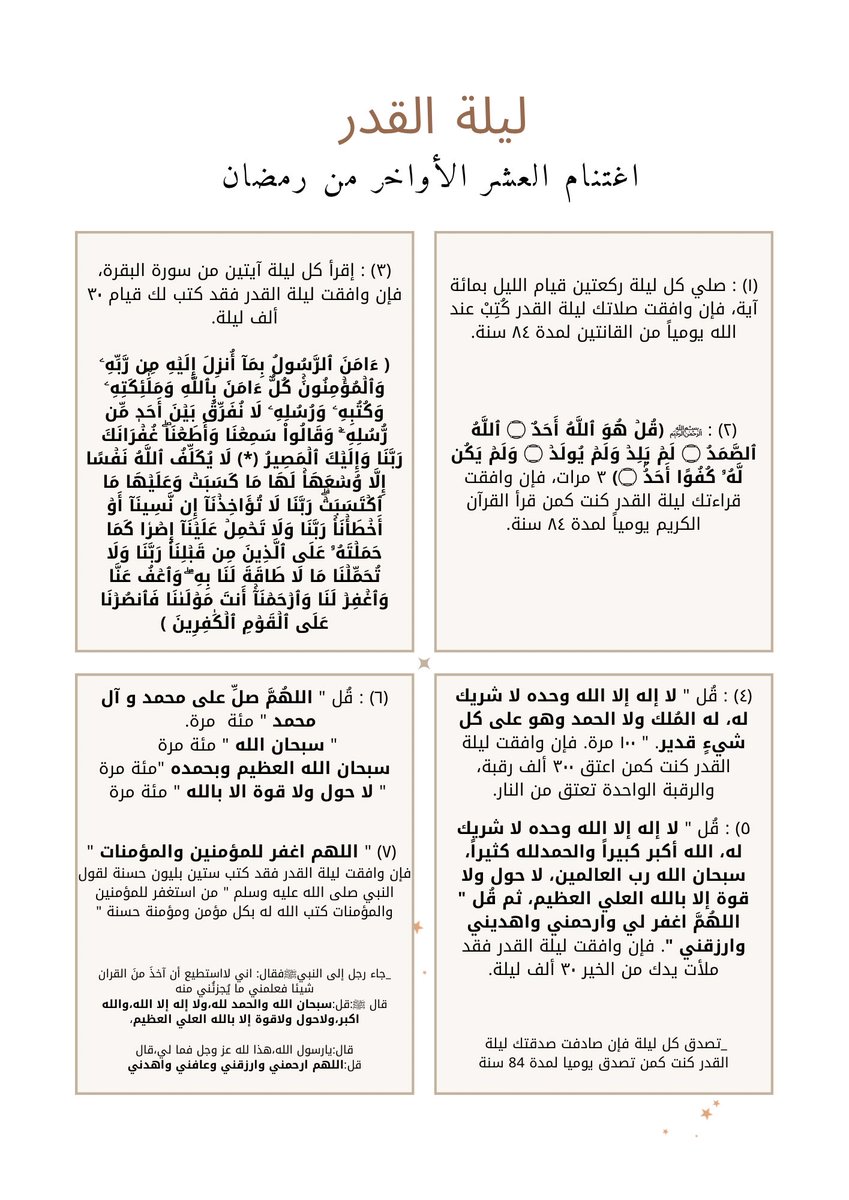 ليلة القدر
اغتنام العشر الأواخر من رمضان
(١) : صلي كل ليلة ركعتين قيام الليل بمائة
آية، فإن وافقت صلاتك ليلة القدر كُتِبْ عند
الله يومياً من القانتين لمدة ٨٤ سنة.
(٢) : ﷽ (قُلۡ هُوَ ٱللَّهُ أَحَدٌ ۝ ٱللَّهُ
ٱلصَّمَدُ ۝ لَمۡ يَلِدۡ وَلَمۡ يُولَدۡ ۝ وَلَمۡ يَكُن
لَّهُۥ كُفُوًا أَحَدُۢ ۝) ٣ مرات، فإن وافقت
قراءتك ليلة القدر كنت كمن قرأ القرآن
الكريم يومياً لمدة ٨٤ سنة.
(٣) : إقرأ كل ليلة آيتين من سورة البقرة،
فإن وافقت ليلة القدر فقد كتب لك قيام ٣٠
ألف ليلة.
( ءَامَنَ ٱلرَّسُولُ بِمَآ أُنزِلَ إِلَيۡهِ مِن رَّبِّهِۦ
وَٱلۡمُؤۡمِنُونَۚ كُلٌّ ءَامَنَ بِٱللَّهِ وَمَلَٰٓئِكَتِهِۦ
وَكُتُبِهِۦ وَرُسُلِهِۦ لَا نُفَرِّقُ بَيۡنَ أَحَدٖ مِّن
رُّسُلِهِۦۚ وَقَالُواْ سَمِعۡنَا وَأَطَعۡنَاۖ غُفۡرَانَكَ
رَبَّنَا وَإِلَيۡكَ ٱلۡمَصِيرُ (*) لَا يُكَلِّفُ ٱللَّهُ نَفۡسًا
إِلَّا وُسۡعَهَاۚ لَهَا مَا كَسَبَتۡ وَعَلَيۡهَا مَا
ٱكۡتَسَبَتۡۗ رَبَّنَا لَا تُؤَاخِذۡنَآ إِن نَّسِينَآ أَوۡ
أَخۡطَأۡنَاۚ رَبَّنَا وَلَا تَحۡمِلۡ عَلَيۡنَآ إِصۡرٗا كَمَا
حَمَلۡتَهُۥ عَلَى ٱلَّذِينَ مِن قَبۡلِنَاۚ رَبَّنَا وَلَا
تُحَمِّلۡنَا مَا لَا طَاقَةَ لَنَا بِهِۦۖ وَٱعۡفُ عَنَّا
وَٱغۡفِرۡ لَنَا وَٱرۡحَمۡنَآۚ أَنتَ مَوۡلَىٰنَا فَٱنصُرۡنَا
عَلَى ٱلۡقَوۡمِ ٱلۡكَٰفِرِينَ )
(٤) : قُل " لا إله إلا الله وحده لا شريك
له، له المُلك ولا الحمد وهو على كل
شيءٍ قدير. " ١٠٠ مرة. فإن وافقت ليلة
القدر كنت كمن اعتق ٣٠٠ ألف رقبة،
والرقبة الواحدة تعتق من النار.
٥) : قُل " لا إله إلا الله وحده لا شريك
له، الله أكبر كبيراً والحمدلله كثيراً،
سبحان الله رب العالمين، لا حول ولا
قوة إلا بالله العلي العظيم، ثم قُل "
اللهُمَّ اغفر لي وارحمني واهديني
وارزقني ". فإن وافقت ليلة القدر فقد
ملأت يدك من الخير ٣٠ ألف ليلة.
_تصدق كل ليلة فإن صادفت صدقتك ليلة
القدر كنت كمن تصدق يوميا لمدة 84 سنة
(٦) : قُل " اللهُمَّ صلِّ على محمد و آل
محمد " مئة مرة.
" سبحان الله " مئة مرة
سبحان الله العظيم وبحمده "مئة مرة
" لا حول ولا قوة الا بالله " مئة مرة
(٧) " اللهم اغفر للمؤمنين والمؤمنات "
فإن وافقت ليلة القدر فقد كتب ستين بليون حسنة لقول
النبي صلى الله عليه وسلم " من استغفر للمؤمنين
والمؤمنات كتب الله له بكل مؤمن ومؤمنة حسنة "
_جاء رجل إلى النبيﷺفقال: اني لااستطيع أن آخذَ منَ القران
شيئا فعلمني ما يُجزئُني منه
قال ﷺ:قل:سبحان الله والحمد لله،ولا إله إلا الله،والله
اكبر،ولاحول ولاقوة إلا بالله العلي العظيم،
قال:يارسول الله،هذا لله عز وجل فما لي،قال
قل:اللهم ارحمني وارزقني وعافني واهدني